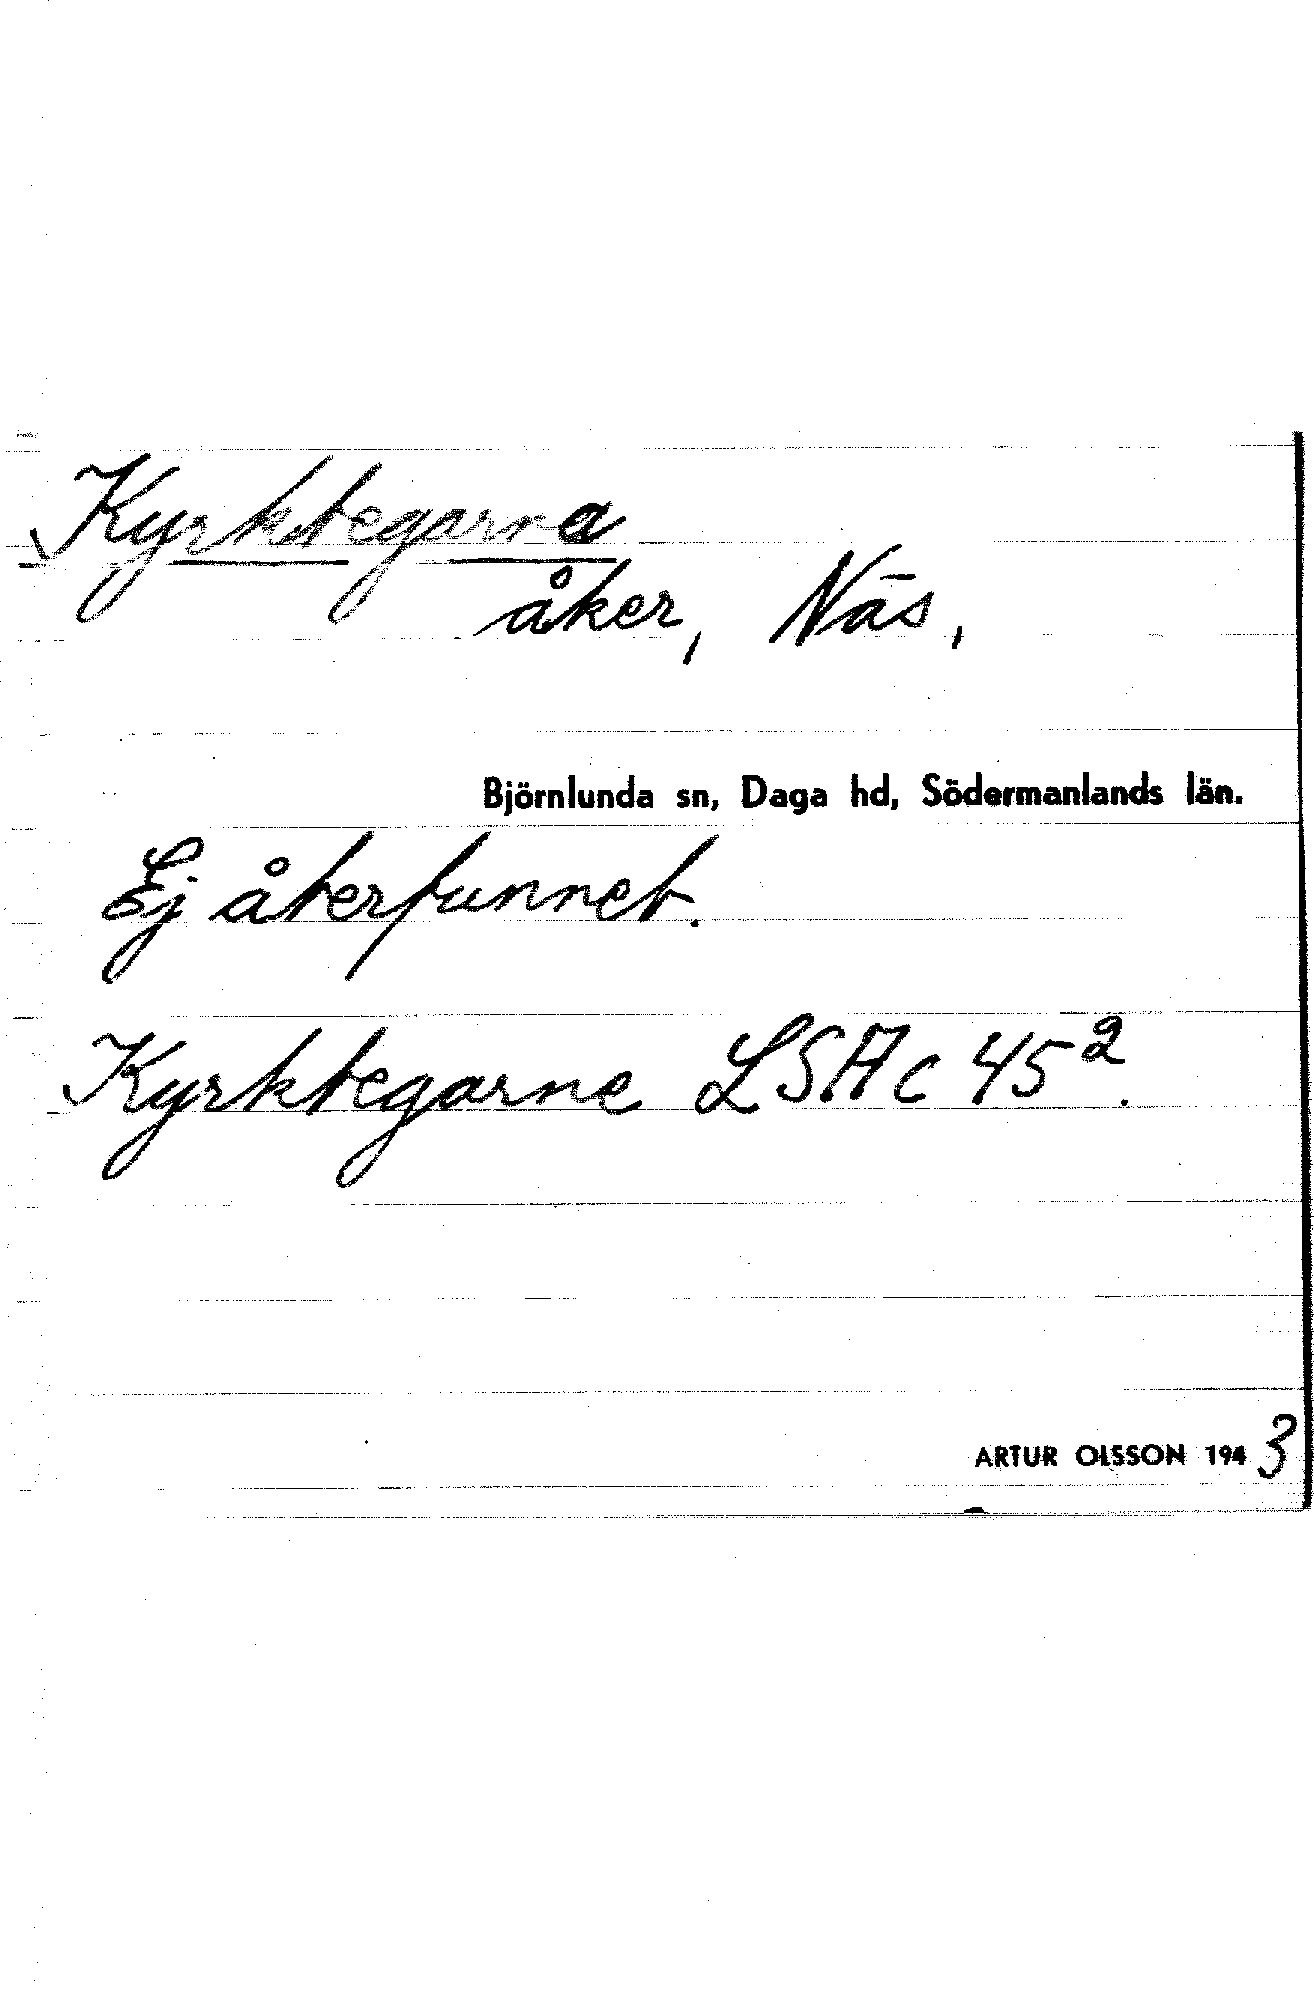 Kyrktegarna
åker, Näs,
Björnlunda sn, Daga hd, Södermanlands län.
Ej återfunnet.
Kyrktegarne LSA c 45².
ARTUR OLSSON 1943